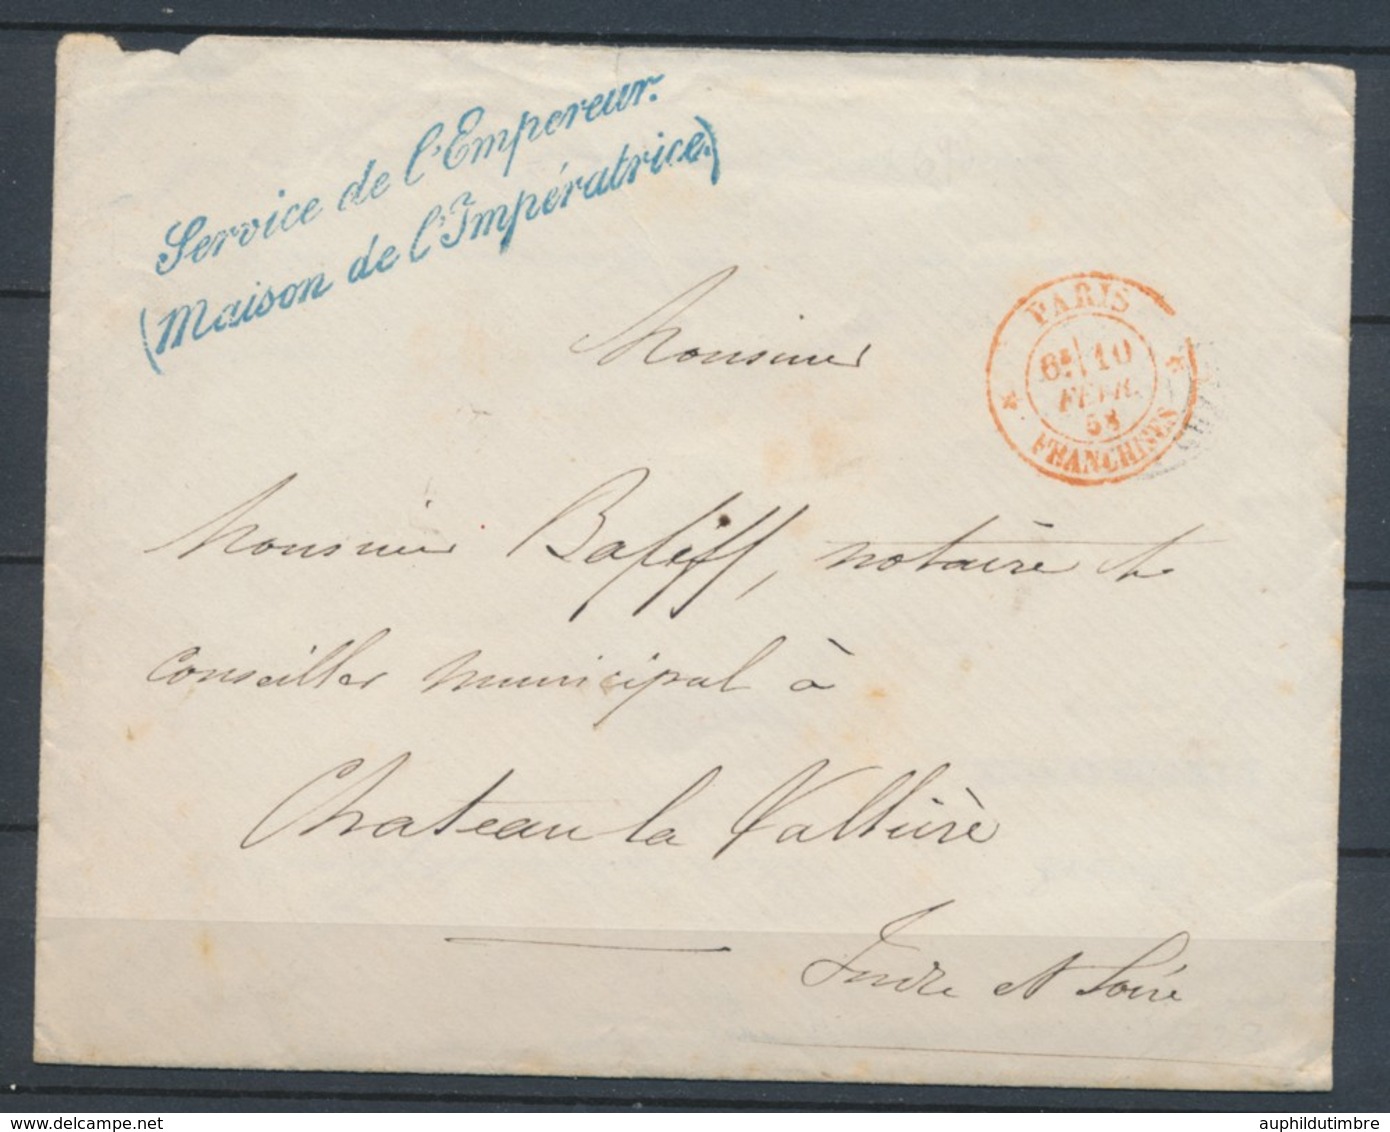 Service de l'Empereur.
(Maison de l'Impératrice.)
PARIS
10
FEVR.
58
FRANCHISES
Monsieur
Monsieur notaire &
conseiller municipal à
Chateau la Vallière
Indre et Loire
auphildutimbre.com